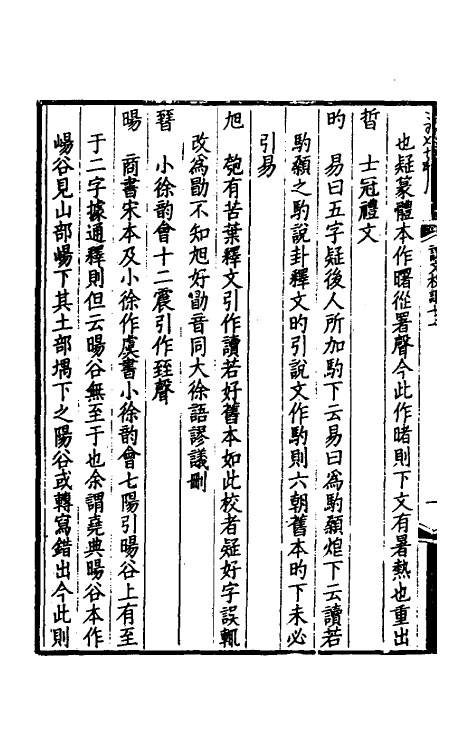 也疑篆體本作曙從署聲今此作睹則下文有暑熱也重出
晢　士冠禮文
昀　易曰五字疑後人所加馰下云易曰為馰顙炟下云讀若
馰顙之馰說卦釋文旳引說文作馰則六朝舊本旳下未必
引易
旭　匏有苦葉釋文引作讀若好舊本如此校者疑好字誤輒
改為勖不知旭好勖音同大徐語謬議刪
㬜　小徐韵會十二震引作臸聲
暘　商書宋本及小徐作虞書小徐韵會七陽引暘谷上有至
于二字據通釋則但云暘谷無至于也余謂堯典暘谷本作
崵谷見山部崵下其土部堣下之陽谷或轉寫錯出今此則